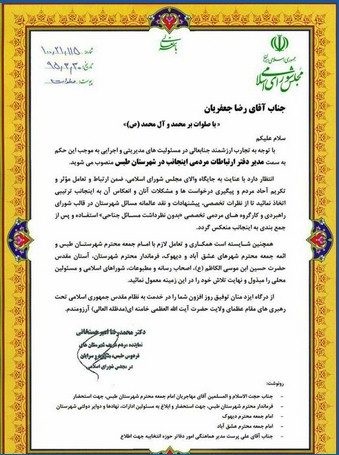 باسمه تعالی
جمهوری اسلامی ایران
مجلس شورای اسلامی
جناب آقای رضا جعفریان
«با صلوات بر محمد و آل محمد (ص)»
سلام علیکم
با توجه به تجارب ارزشمند جنابعالی در مسئولیت های مدیریتی و اجرایی به موجب این حکم
به سمت مدیر دفتر ارتباطات مردمی اینجانب در شهرستان طبس منصوب می شوید.
انتظار دارد با عنایت به جایگاه والای مجلس شورای اسلامی، ضمن ارتباط و تعامل مؤثر و
تکریم آحاد مردم و پیگیری درخواست ها و مشکلات آنان و انعکاس آن به اینجانب ترتیبی
اتخاذ نمائید تا از نظرات تخصصی، پیشنهادات و نقد عالمانه مسائل شهرستان در قالب شورای
راهبردی و کارگروه های مردمی تخصصی «بدون نظرداشت مسائل جناحی» استفاده و پس از
جمع بندی به اینجانب منعکس گردد.
همچنین شایسته است همکاری و تعامل لازم با امام جمعه محترم شهرستان طبس و
ائمه جمعه محترم شهرهای عشق آباد و دیهوک، فرماندار محترم شهرستان، آستان مقدس
حضرت حسین ابن موسی الکاظم (ع)، اصحاب رسانه و مطبوعات، شوراهای اسلامی و مسئولین
محلی را مبذول و نهایت تلاش خود را در این زمینه معمول نمائید.
از درگاه ایزد منان توفیق روز افزون شما را در خدمت به نظام مقدس جمهوری اسلامی تحت
رهبری های مقام عظمای ولایت حضرت آیت الله العظمی خامنه ای (مدظله العالی) آرزومندم.
دکتر محمدرضا امیرحسنخانی
نماینده مردم شریف شهرستان های
فردوس، طبس، بشرویه و سرایان
در مجلس شورای اسلامی
رونوشت:
- جناب حجت الاسلام و المسلمین آقای مهاجریان امام جمعه محترم شهرستان طبس، جهت استحضار
- فرماندار محترم شهرستان طبس، جهت استحضار و ابلاغ به مسئولین ادارات، نهادها و دوایر دولتی شهرستان
- امام جمعه محترم دیهوک
- امام جمعه محترم عشق آباد
- جناب آقای علی پرست مدیر هماهنگی امور دفاتر حوزه انتخابیه جهت اطلاع